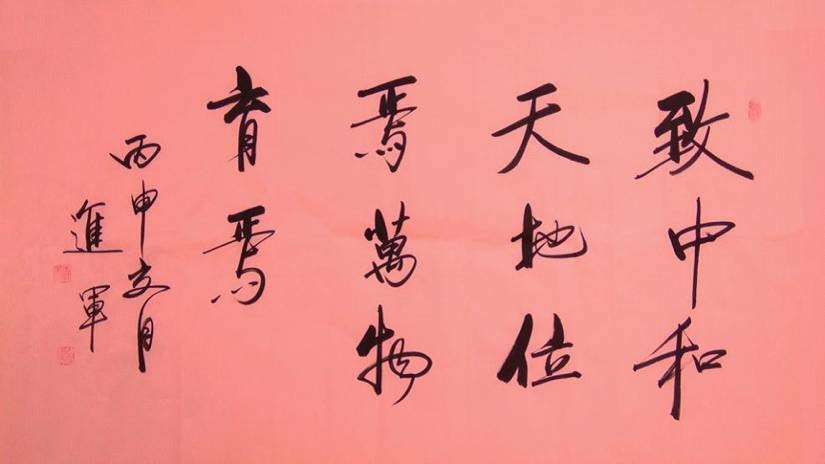 致中和
天地位
焉萬物
育焉
丙申月
進軍